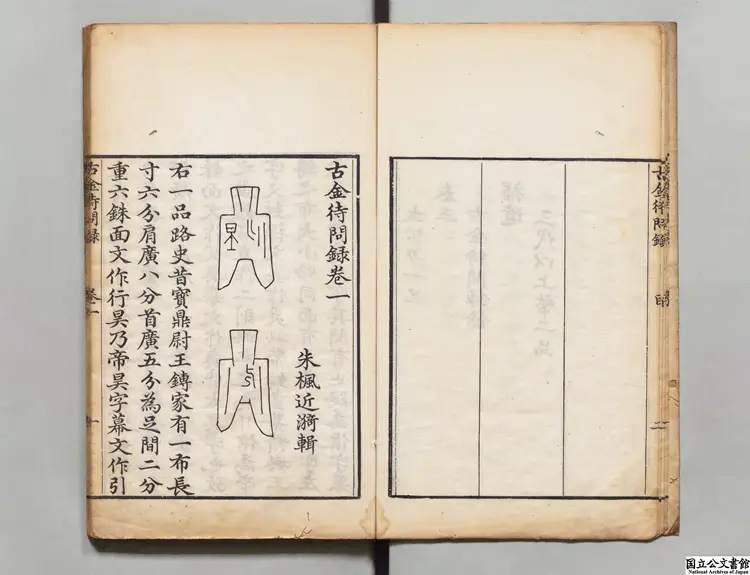 古金待問錄
目
二
古金待問錄卷一
朱楓近漪輯
右一品路史昔寶鼎尉王鎛家有一布長
寸六分肩廣八分首廣五分為足間二分
重六銖面文作行昊乃帝昊字幕文作引
古金待問錄
卷一
一
国立公文書館
National Archives of Japan